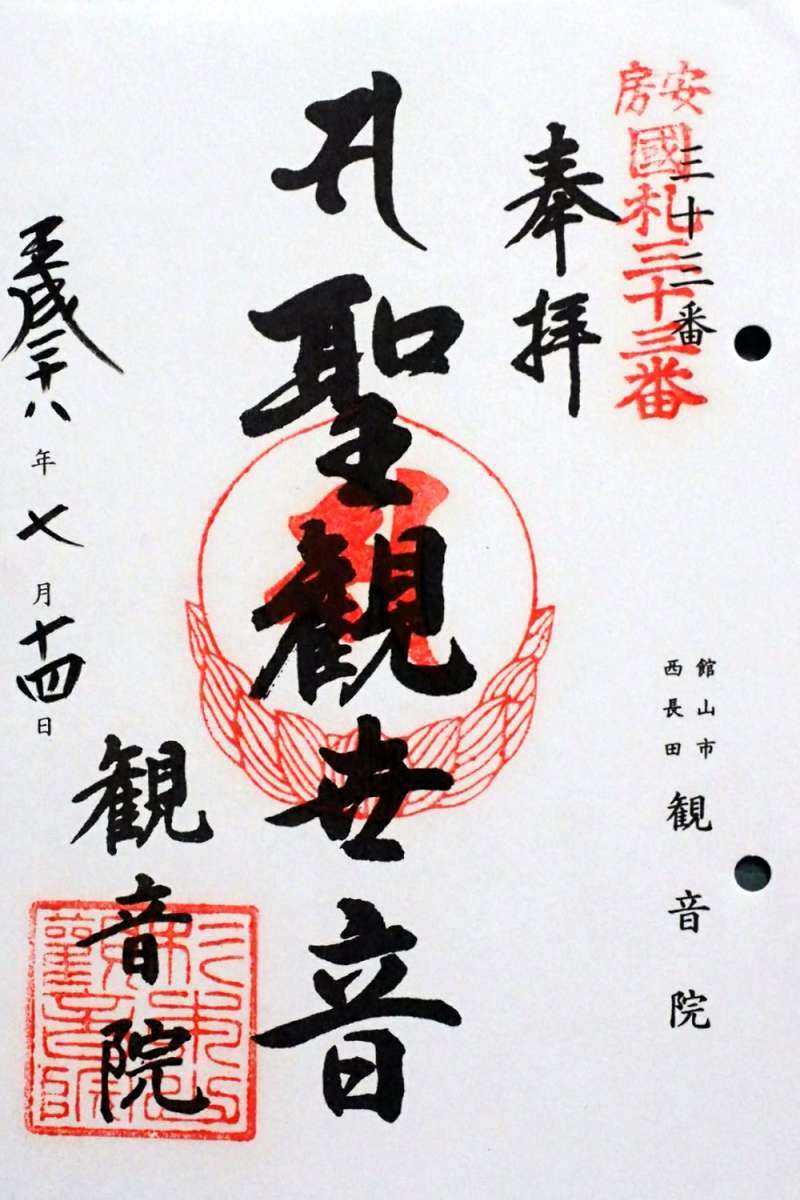 安房
國札三十三番
三十三番
館山市
西長田
観音院
奉拝
聖観世音
観音院
平成二十八年七月十四日